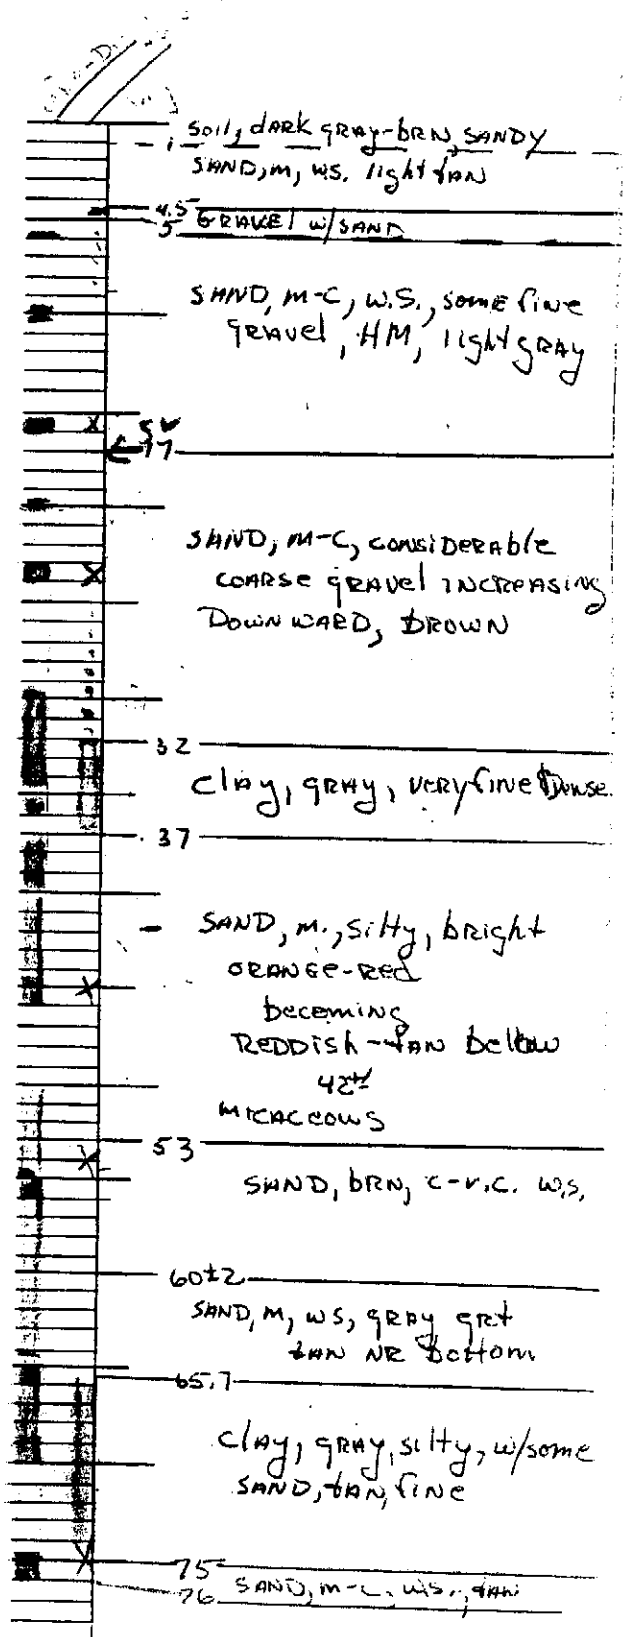 Soil, dARK GRAY-bRN, SANDY
SAND, M, W.S. light tAN
4.5
GRAVEl w/ SAND
5
SAND, M-C, W.S., some fine
gRAvel, HM, light gRAY
17
SAND, M-C, CONSIDERAble
COARSE gRAVel INCREASING
DOWNWARD, BROWN
32
ClAy, gRAy, veRy fine & Dense.
37
SAND, M., silty, bright
ORANGE-Red
becoming
REDDish-tAN bellow
42±
MICACEOUS
53
SAND, bRN, C-V.C. W.S.
60±2
SAND, M, WS, gRAy grt
tAN NR bottom
65.7
ClAy, gRAy, silty, w/some
SAND, tAN, fiNe
75
76 SAND, M-C, W.S., tAN